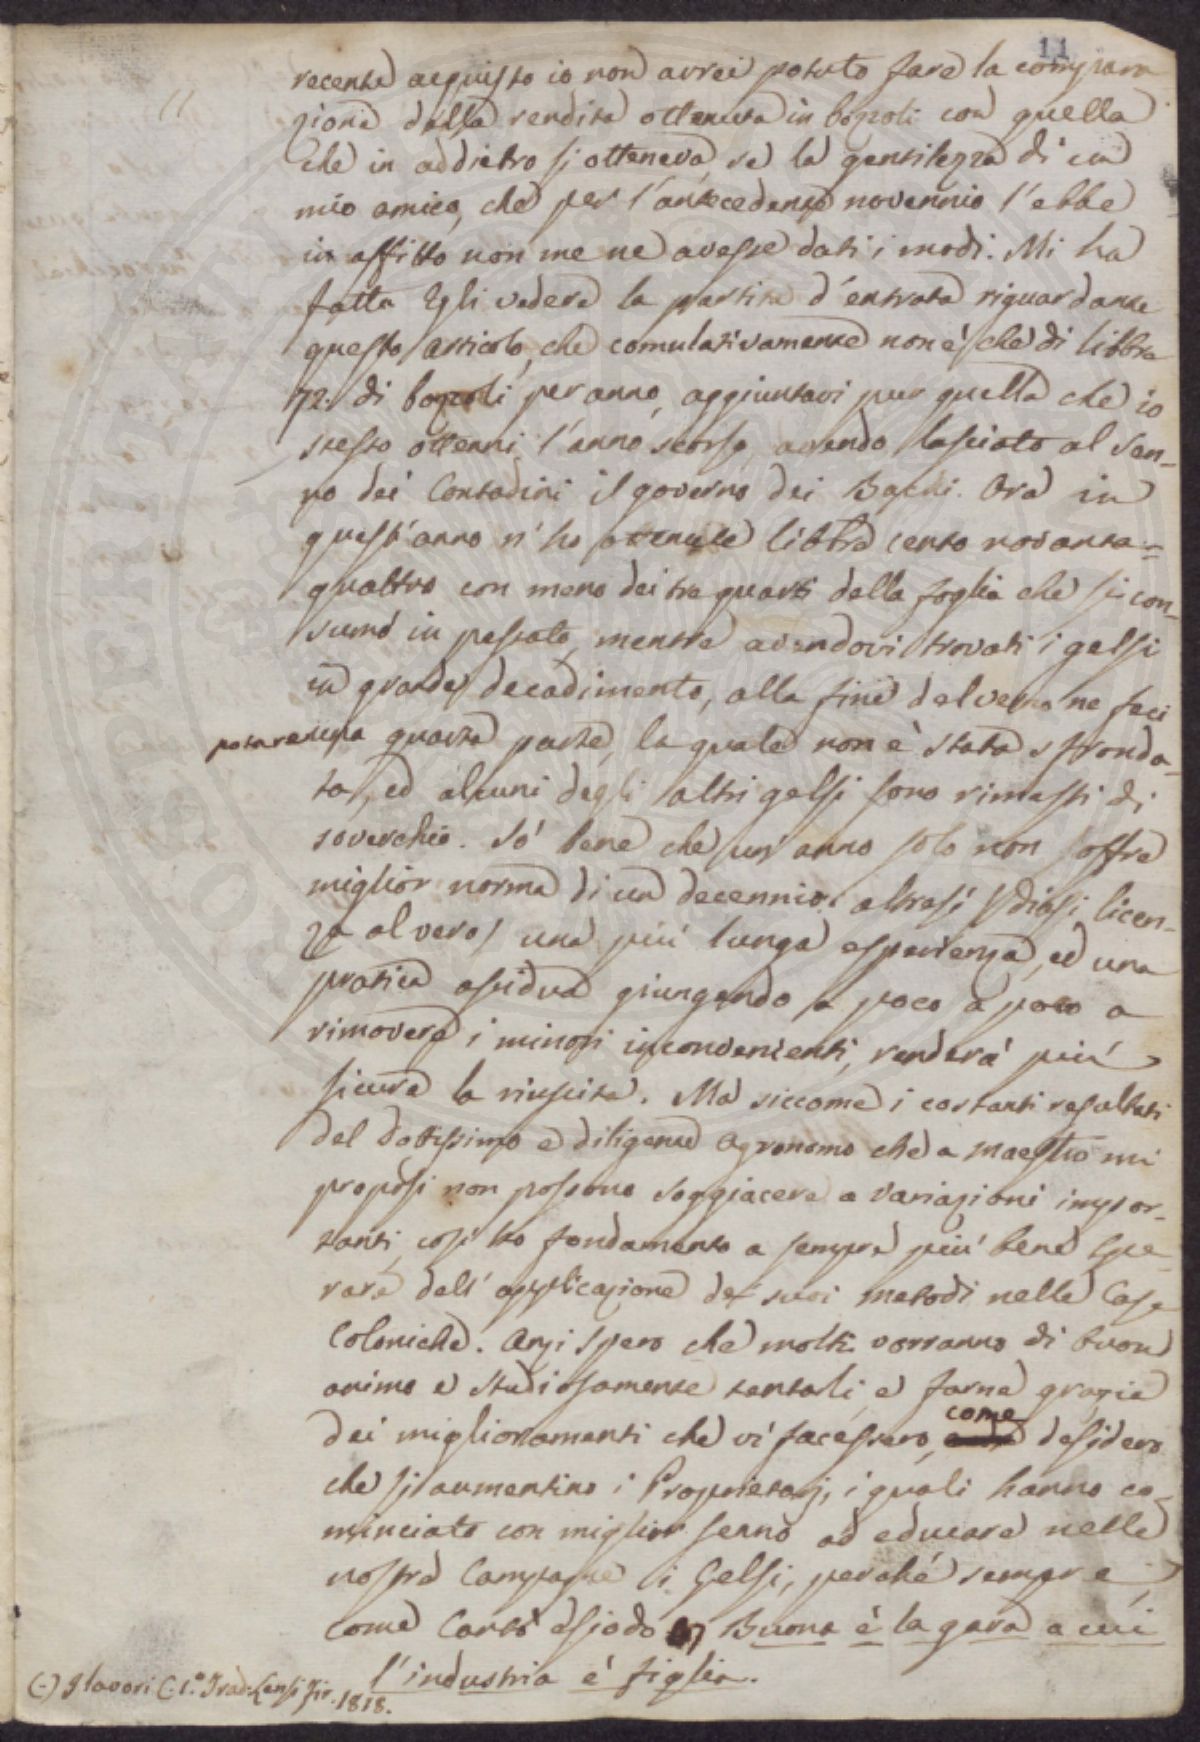 11
11
recente acquisto io non avrei potuto fare la compara
zione della rendita ottenuta in bozzoli con quella
che in addietro si otteneva, se la gentilezza di un
mio amico, che per l'antecedente novennio l'ebbe
in affitto non me ne avesse dati i modi. Mi ha
fatta Egli vedere la partita d'entrata riguardante
questo articolo, che comulativamente non è che di libbre
72. di bozzoli per anno, aggiuntavi pur quella che io
stesso ottenni l'anno scorso, avendo lasciato al sen-
no dei Contadini il governo dei Bachi. Ora in
quest'anno n'ho ottenute libbre cento novanta=
quattro con meno dei tre quarti della foglia che si con-
sumò in passato, mentre avendovi trovati i gelsi
in grande decadimento, alla fine del verno ne feci
potare una quarta parte, la quale non è stata sfronda-
ta, ed alcuni degli altri gelsi sono rimasti di
soverchio. Sò bene che un'anno solo non offre
miglior norma di un decennio: altresì (diasi licen-
za al vero) una più lunga esperienza, ed una
pratica assidua giungendo a poco a poco a
rimovere i minori inconvenienti, renderà più
sicura la riuscita. Ma siccome i costanti resultati
del dottissimo e diligente agronomo che a maestro mi
proposi non possono soggiacere a variazioni impor-
tanti, così ho fondamento a sempre più bene spe-
rare dell'applicazione de' suoi metodi nelle Case
Coloniche. Anzi spero che molti vorranno di buon
animo e studiosamente tentali, e farne grazie
dei miglioramenti che vi facessero, come desidero
che si aumentino i Proprietarj, i quali hanno co-
minciato con miglior senno ad educare nelle
nostre Campagne i Gelsi, perché sempre,
come cantò esiodo Buona è la gara a cui
l'industria è figlia.
(-) I lavori C. 1.° Trad: Lanzi Fir. 1818.